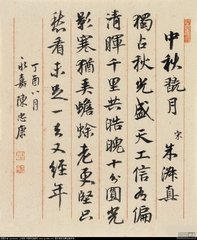 中秋翫月 宋 朱淑真
獨占秋光盛天工信有偏
清暉千里共皓魄十分圓光
影寒猶蟾蜍老更堅只
愁看未足去又經年
丁酉八月
永嘉陳忠康